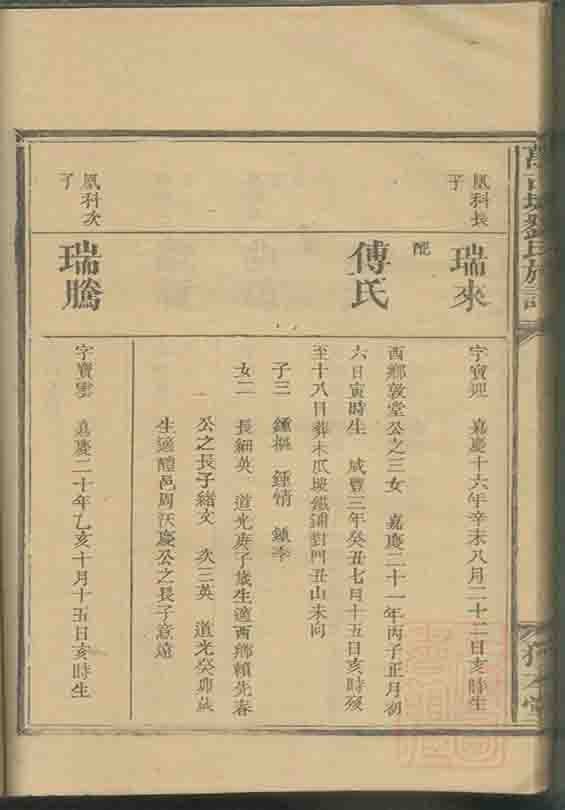 劉氏族譜
鳳科長
子
瑞來
字寶兆 嘉慶十六年辛未八月二十二日亥時生
配
傅氏
西鄉敦堂公之三女 嘉慶二十一年丙子正月初
六日寅時生 咸豐三年癸丑七月十五日亥時殁
至十八日葬木瓜坡鐵鋪對門丑山未向
子三 鍾樞 鍾情 鍾季
女二 長細英 道光庚子歲生適西鄉賴先春
公之長子緒文 次三英 道光癸卯歲
生適醴邑周沃慶公之長子意遠
鳳科次
子
瑞騰
字寶雲 嘉慶二十年乙亥十月十五日亥時生